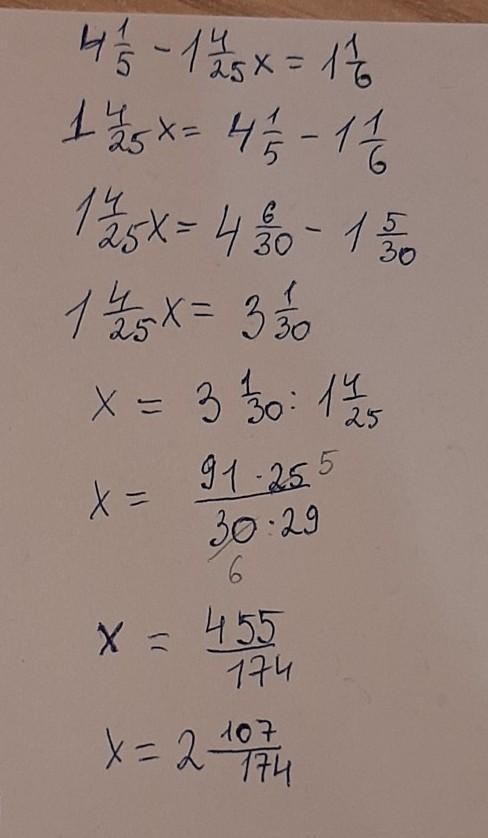 4 1/5 - 1 4/25 x = 1 1/6
1 4/25 x = 4 1/5 - 1 1/6
1 4/25 x = 4 6/30 - 1 5/30
1 4/25 x = 3 1/30
x = 3 1/30 : 1 4/25
x = 91 · 25 5 / 30 : 29
6
x = 455/174
x = 2 107/174